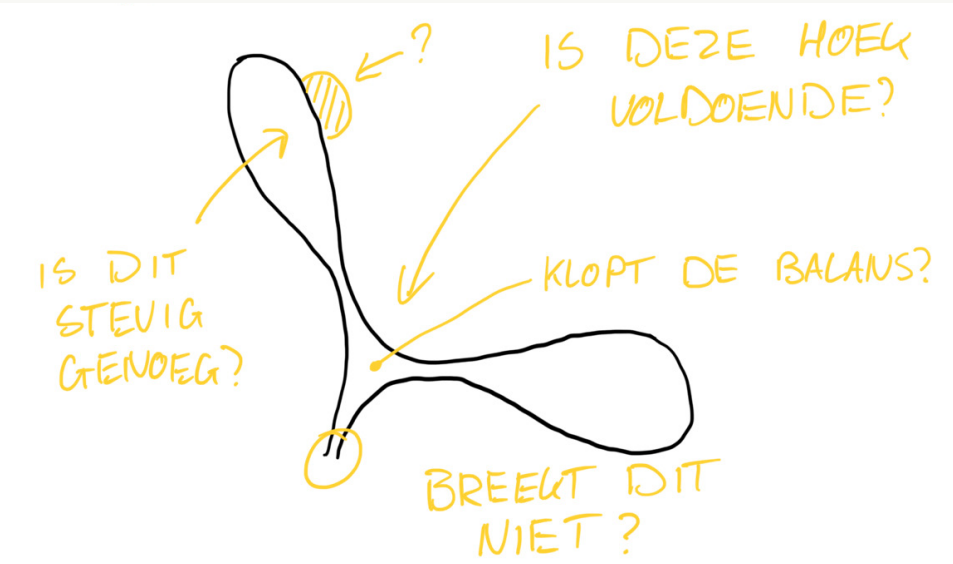 ?
IS DEZE HOEK
VOLDOENDE?
IS DIT
STEVIG
GENOEG?
KLOPT DE BALANS?
BREEKT DIT
NIET?